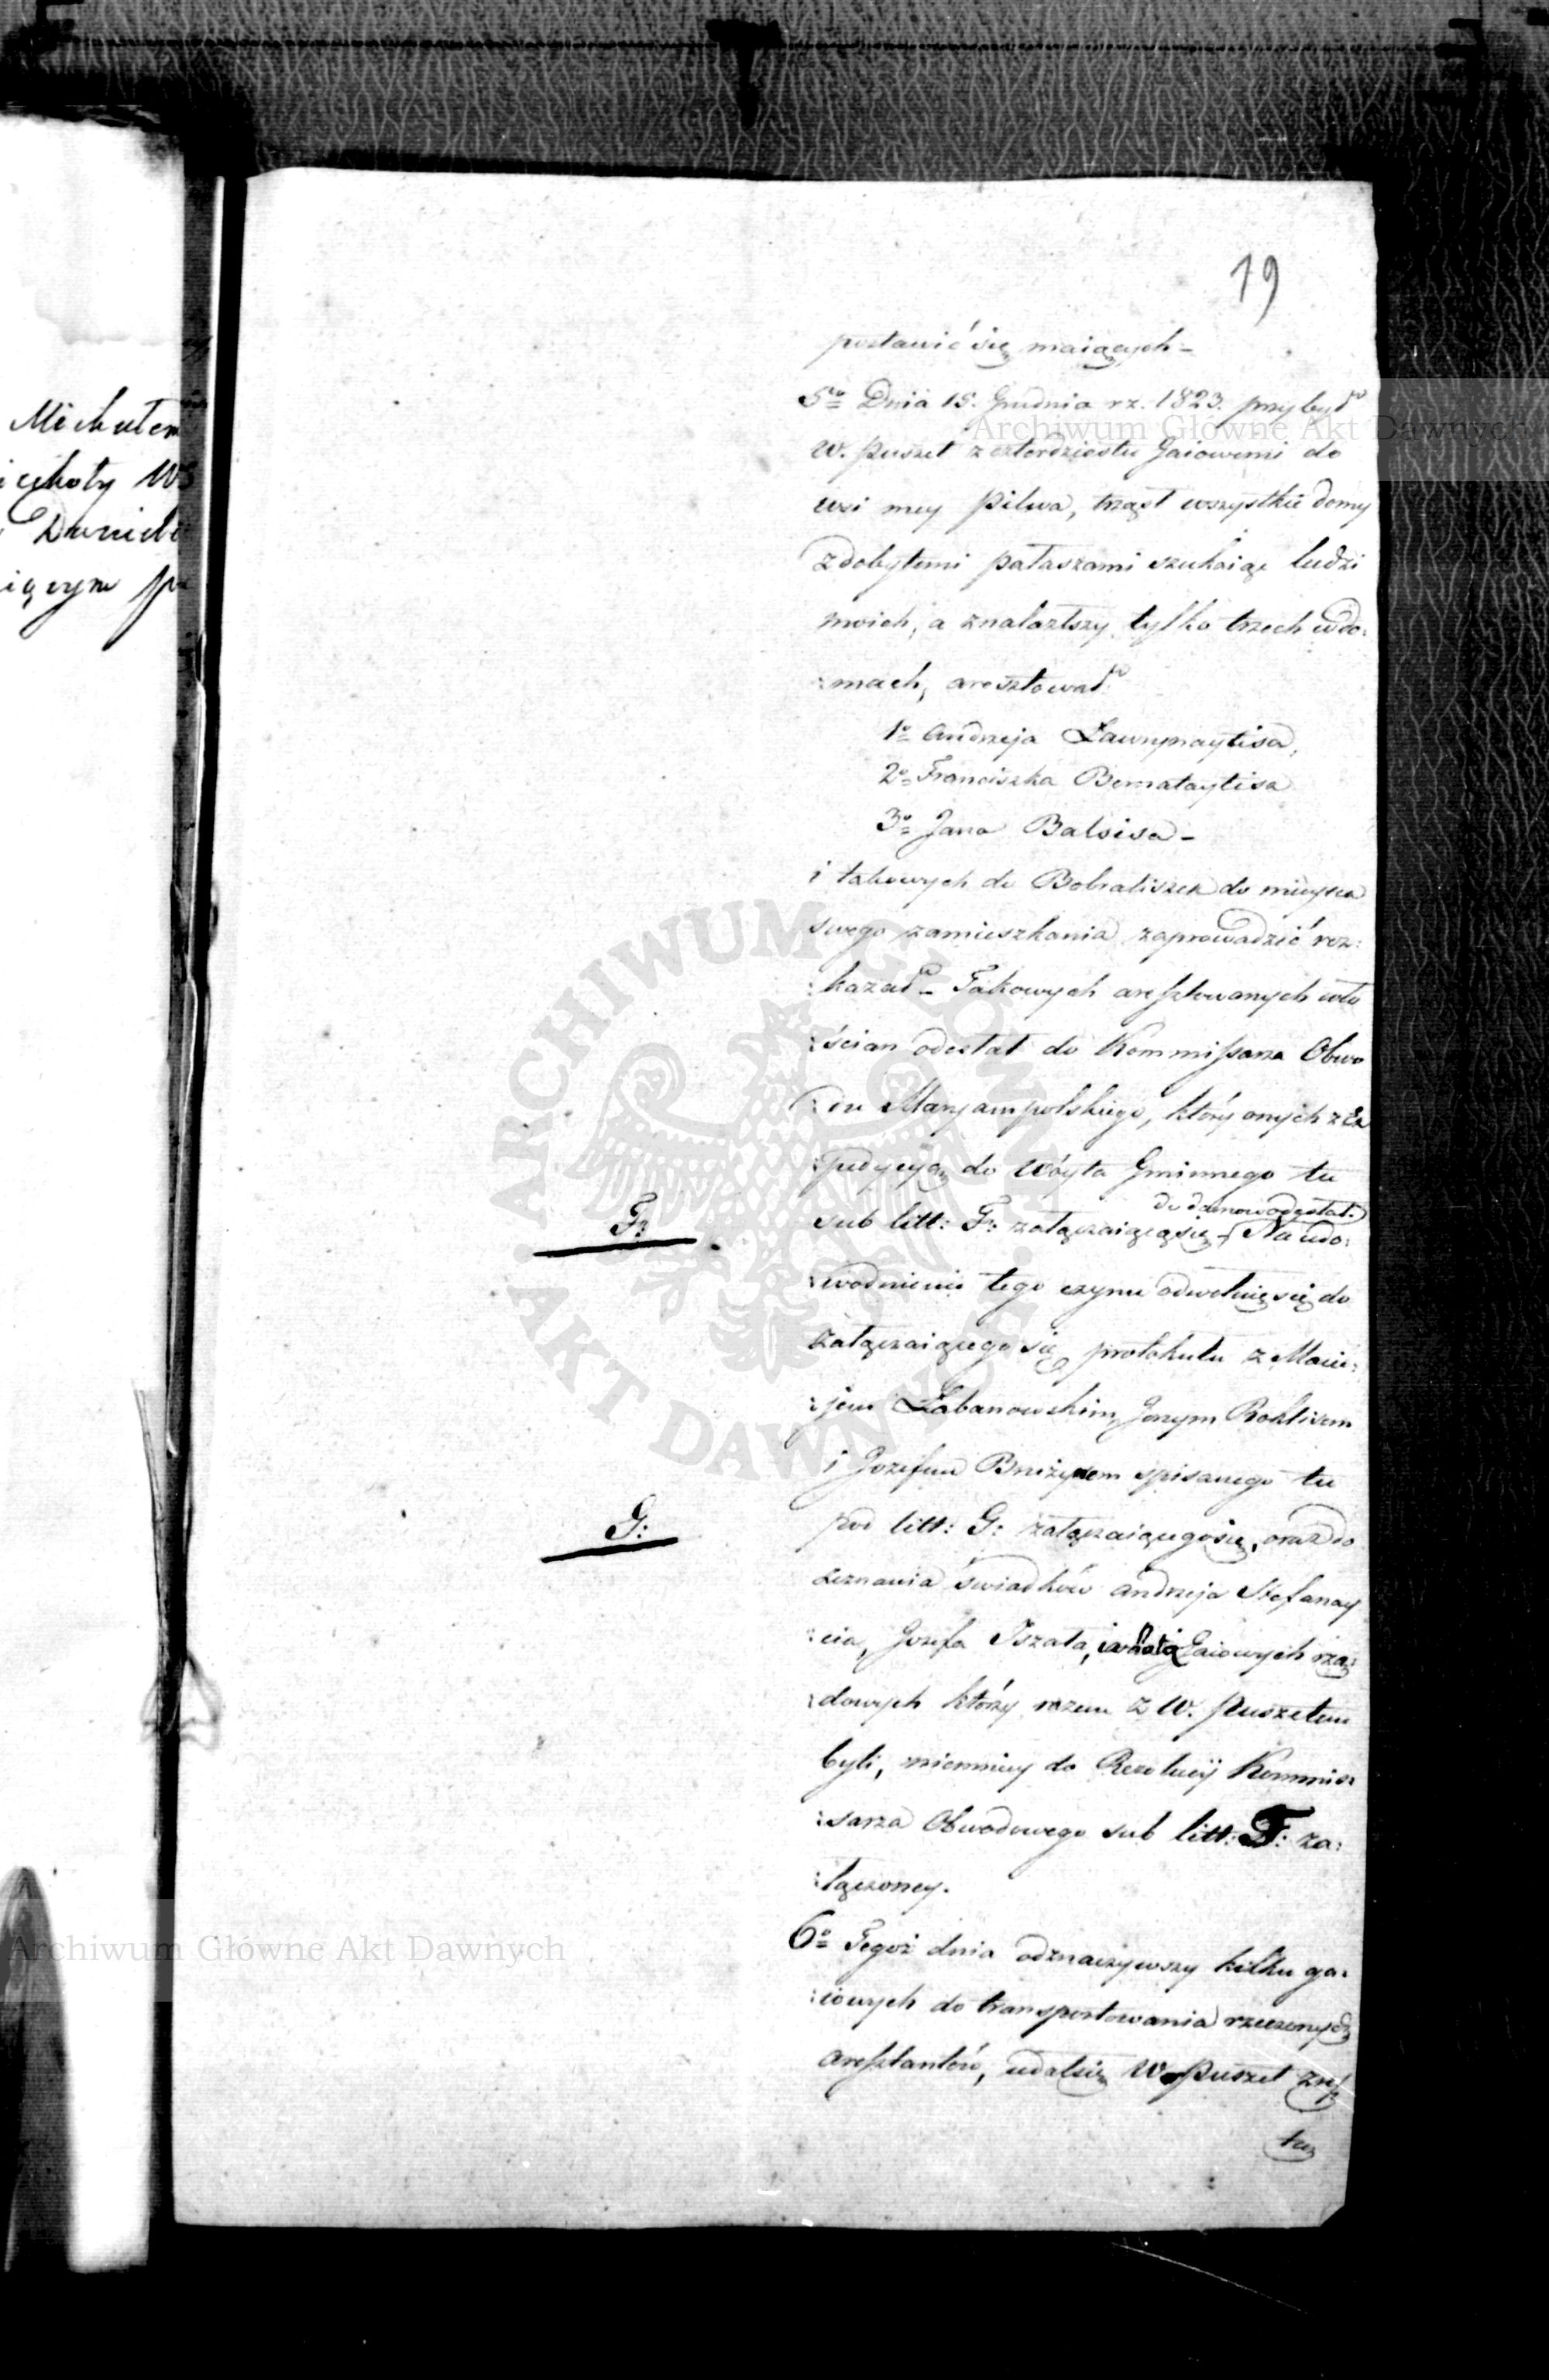 19
postawić się maiących –
5to Dnia 15. Grudnia r z. 1823. przybył
W. Puszet z czterdziestu Gaiowemi do
wsi mey Pilwa, trząsł wszystkie domy
z dobytemi pałaszami szukaiąc ludzi
moich, a znalazłszy tylko trzech w do:
:mach, aresztował
1o Andrzeja Ławrynaytisa,
2o Franciszka Bernataytisa
3o Jana Balsisa –
i takowych do Bobraliszek do mieysca
swego zamieszkania zaprowadzić roz:
:kazał – Takowych aresztowanych wło
:ścian odesłał do Kommissarza Obwo
:du Maryampolskiego, który onych z Ex
:pedycyą do Wóyta Gminnego tu
do domow odesłał.
F:
sub litt: F: załączaiącą się – Na udo:
:wodnienie tego czynu odwołuię się do
załączaiącego się protokułu z Macie:
:jem Łabanowskim, Jerzym Roklisem
i Jozefem Brużysem spisanego tu
G:
pod litt: G: załączaiącego się, oraz do
zeznania świadków Andrzeja Stefanay
:cia, Jozefa Iszata, Gaiowych rzą:
:dowych którzy razem z W. Puszetem
byli, niemniey do Rezolucÿi Kommis:
:sarza Obwodowego sub litt: F: za:
:łączoney.
6o Tegoż dnia odznaczywszy kilku ga:
:iowych do transportowania rzeczonych
aresztantów, udał się W Puszet z
Michałem
W
Archiwum Główne Akt Dawnych
Archiwum Główne Akt Dawnych
ARCHIWUM GŁÓWNE AKT DAWNYCH